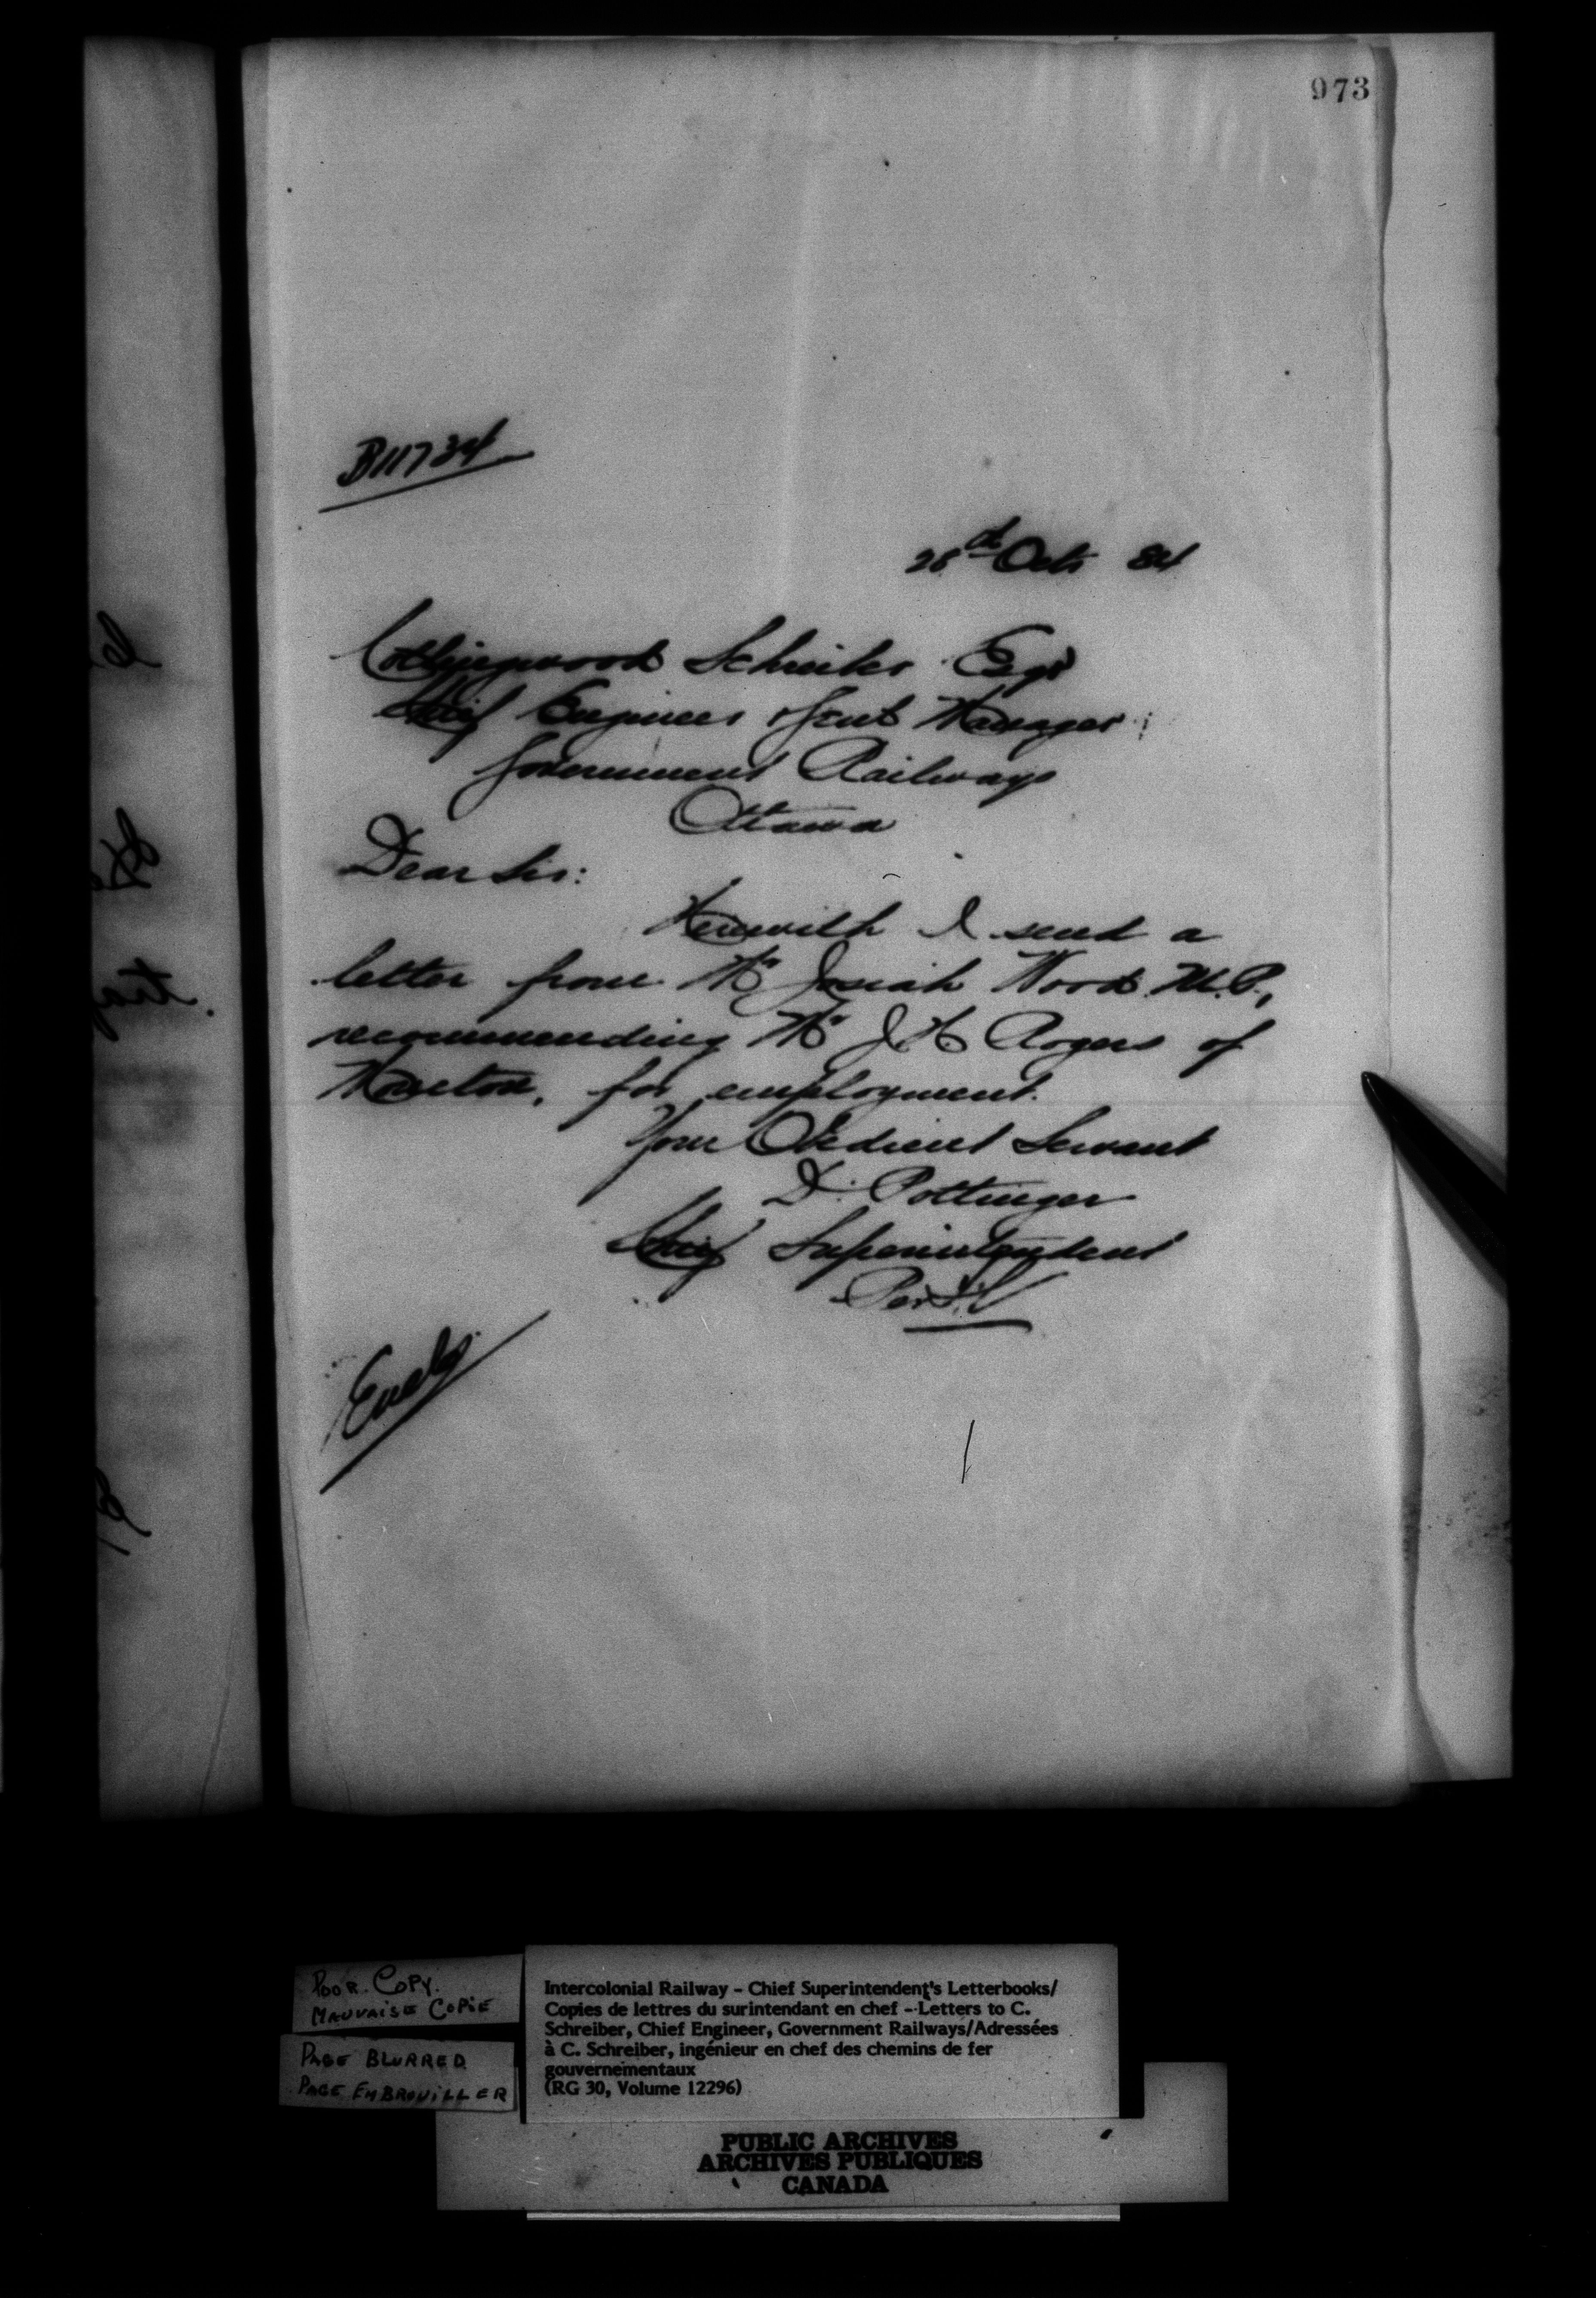 973
B11734
28th Octr 84
Collingwood Schreiber Esqr
Chief Engineer & Genl Manager
Government Railways
Ottawa
Dear Sir:
Herewith I send a
letter from Mr Josiah Wood M.P.,
recommending Mr J H Rogers of
Moncton, for employment.
Your Obedient Servant
D. Pottinger
Chief Superintendent
Per
POOR COPY.
MAUVAISE COPIE
PAGE BLURRED
PAGE EMBROUILLER
Intercolonial Railway – Chief Superintendent's Letterbooks/
Copies de lettres du surintendant en chef – Letters to C.
Schreiber, Chief Engineer, Government Railways/Adressées
à C. Schreiber, ingénieur en chef des chemins de fer
gouvernementaux
(RG 30, Volume 12296)
PUBLIC ARCHIVES
ARCHIVES PUBLIQUES
CANADA